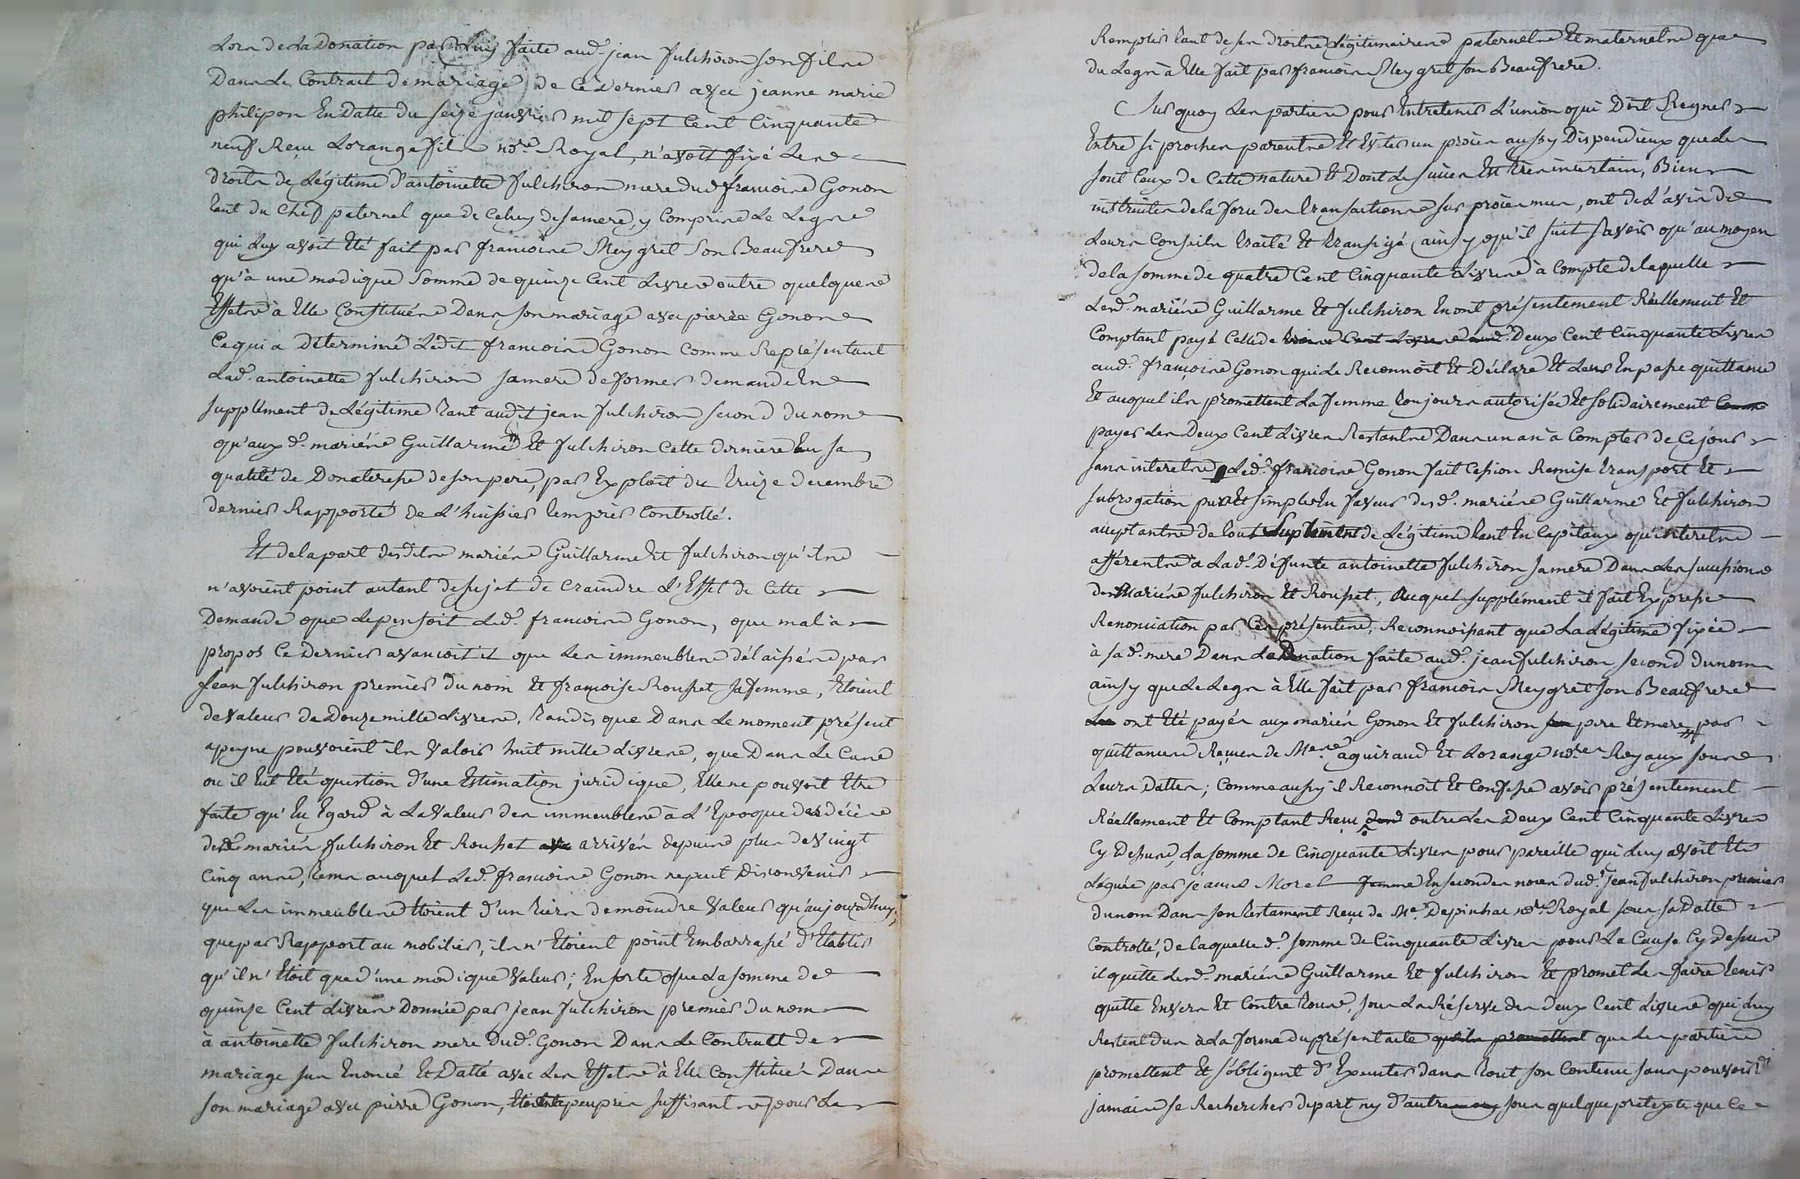 Lors de La Donation par Luy faite aud. jean fulchiron son fils
Dans Le Contrait de mariage de Ce Dernier avec jeanne marie
philipon En Datte du seize janvier mil sept Cent Cinquante
neuf Reçu Lorange fils no.re Royal, n'avoit fixé Les
droits de Légitime d'antoinette fulchiron mere dud. françois Gonon
tant du Chef paternel que de Celuy de sa mere, y Compris Le Legs
qui Luy avoit Eté fait par françois Meygret son Beaufrere
qu'à une modique somme de quinze Cent Livres outre quelques
Effets à Elle Constitués Dans son mariage avec pierre Gonon
Ce qui a Déterminé Ledit françois Gonon Comme Représentant
Lad. antoinette fulchiron sa mere de former demande En
supplément de Légitime tant audit jean fulchiron second du nom
qu'aux d. mariés Guillarme Et fulchiron Cette derniere En sa
qualité de Donateresse de son pere, par Exploit du treize decembre
dernier Rapporté de L'huissier Lemprès Controllé.
Et de la part desdits mariés Guillarme Et fulchiron qu'ils
n'avoient point autant de sujet de Craindre L'Effet de Cette
Demande que Le pensoit Led. françois Gonon, que mal à
propos Ce Dernier avancoit il que Les immeubles délaissés par
jean fulchiron premier du nom Et françoise Rouset sa femme, Etoient
de valeur de Douze mille Livres, tandis que Dans Le moment présent
apeyne pouvoient ils valoir huit mille Livres, que Dans Le Cas
ou il Eut Eté question d'une Estimation juridique, Elle ne pouvoit Etre
faite qu'Eu Egard à La valeur des immeubles à L'Epoque des décès
des d. mariés fulchiron Et Rouset arrivés depuis plus de vingt
Cinq ans, tems auquel Led. françois Gonon ne peut Disconvenir
que Les immeubles Etoient d'un tiers de moindre valeur qu'aujourdhuy;
que par Rapport au mobilier, ils n'Etoient point Embarrassé d'Etablir
qu'il n'Etoit que d'une modique valeur; En sorte que La somme de
quinze Cent Livres Donnée par jean fulchiron premier du nom
à antoinette fulchiron mere dud. Gonon Dans Le Contrait de
mariage sus Enoncé Et Datté avec Les Effets à Elle Constitués Dans
son mariage avec pierre Gonon, Etoient à peu près suffisants pour La
Remplir tant de ses droits Légitimaires paternels Et maternels que
du Legs à Elle fait par françois Meygret son Beaufrere.
Sur quoy Les parties pour Entretenir L'union qui Doit Regner
Entre si proches parents Et Eviter un procès aussy Dispendieux que Le
sont Ceux de Cette nature Et Dont Le succès Est très incertain, Bien
instruites de la force des transactions sur procès mus, ont de L'avis de
Leurs Conseils traité Et transigé ainsy qu'il suit savoir qu'au moyen
de la somme de quatre Cent Cinquante Livres à Compte de laquelle
Lesd. mariés Guillarme Et fulchiron En ont présentement Réellement Et
Comptant payé Celle de Deux Cent Cinquante Livres
aud. françois Gonon qui Le Reconnoit Et Déclare Et Leur En passe quittance
Et auquel ils promettent La femme toujours autorisée Et solidairement
payer Les Deux Cent Livres Restantes Dans un an à Compter de Ce jour
sans interets, Led. françois Gonon fait Cession Remise transport Et
subrogation pure Et simple En faveur desd. mariés Guillarme Et fulchiron
acceptants de tout Supplément de Légitime tant En Capitaux qu'interets
afférents à Lad. Défunte antoinette fulchiron sa mere Dans Les successions
des Mariés fulchiron Et Rouset, auquel supplément il fait Expresse
Renonciation par Ces présentes, Reconnoissant que La Légitime fixée
à sad. mere Dans La Donation faite aud. jean fulchiron second du nom
ainsy que Le Legs à Elle fait par françois Meygret son Beaufrere
ont Eté payés aux mariés Gonon Et fulchiron pere Et mere par
quittances Reçues de Mes. aguiraud Et Lorange no.res Royaux sous
Leurs Dattes; Comme aussy il Reconnoit Et Confesse avoir présentement
Réellement Et Comptant Reçu outre Les Deux Cent Cinquante Livres
Cy Dessus La somme de Cinquante Livres pour pareille qui Luy avoit Eté
Léguée par jeanne Morel femme En secondes noces dud. jean fulchiron premier
du nom Dans son testament Reçu de Me. Depinhac no.re Royal sous sa Datte
Controllé, de laquelle d. somme de Cinquante Livres pour La Cause Cy Dessus
il quitte Lesd. mariés Guillarme Et fulchiron Et promet Les faire tenir
quitte Envers Et Contre tous, sous La Réserve des Deux Cent Livres qui Luy
Restent Dus à La forme du présent acte que Les parties
promettent Et s'obligent d'Executer dans tout son Contenu sans pouvoir
jamais se Rechercher de part ny d'autre sous quelque prétexte que Ce